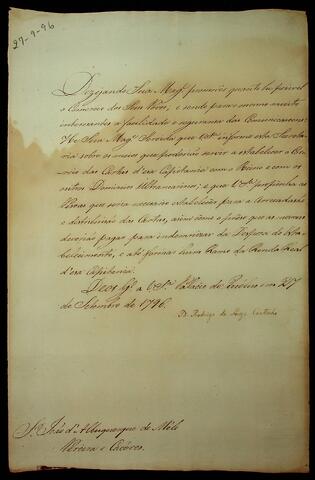 27-9-96
Dezejando Sua Mag.e promover quanto lhe for possivel
o Comercio dos Seus Povos, e sendo para o mesmo muito
interessantes a facilidade e segurança das Communicaçoens:
He Sua Mag.e Servida que V.S.a informe esta Secreta
ria sobre os meios que poderião servir a estabelecer o Cor
reio das Cartas d'essa Capitania com o Reino e com os
outros Dominios Ultramarinos; e que V.S.a proponha as
Pessoas que seria necessario estabelecer para a arrecadação
e distribuição das Cartas, assim como o preço que as mesmas
deverião pagar para indemnizar da Despeza do Esta
belecimento, e até formar hum Ramo da Renda Real
d'essa Capitania.
Deos G.e a V.S.a Palacio de Queluz em 27
de Setembro de 1796.
D. Rodrigo de Souza Coutinho
S.r João d'Albuquerque de Mello
Pereira e Cáceres.